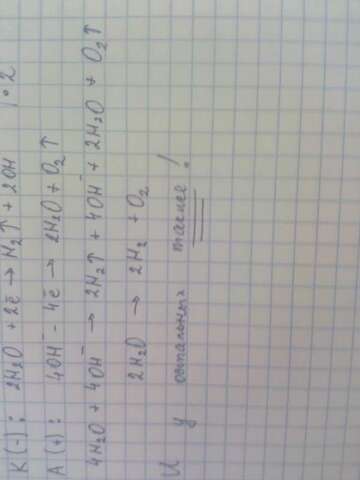 K (-) : 2H₂O + 2ē → H₂↑ + 2OH⁻ | · 2
A (+) : 4OH⁻ - 4ē → 2H₂O + O₂↑
4H₂O + 4OH⁻ → 2H₂↑ + 4OH⁻ + 2H₂O + O₂↑
2H₂O → 2H₂ + O₂
И у остальных также!